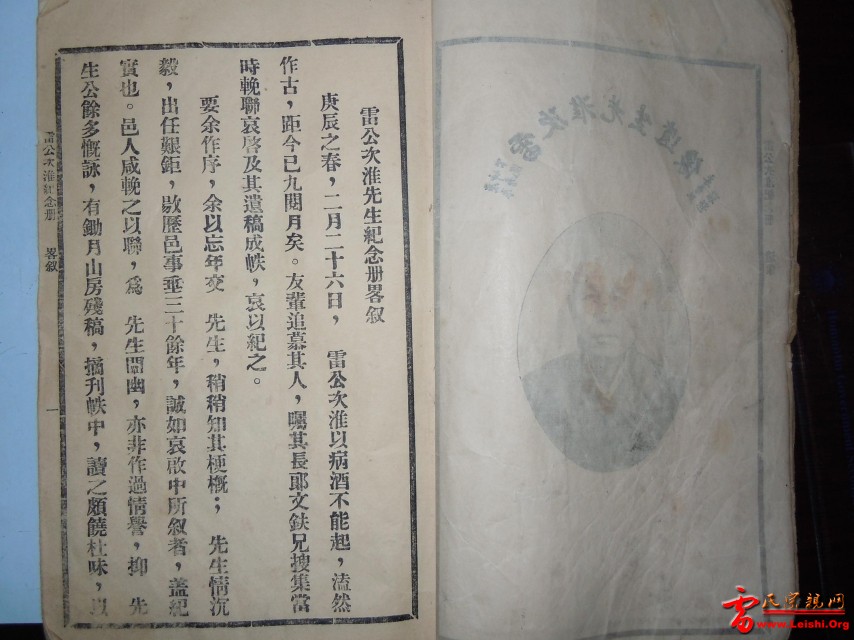 雷公次淮先生紀念册畧叙
庚辰之春，二月二十六日，　雷公次淮以病酒不能起，溘然
作古，距今已九閱月矣。友輩追慕其人，囑其長郞文鈇兄搜集當
時輓聯哀啓及其遺稿成帙，哀以紀之。
要余作序，余以忘年交　先生，稍稍知其梗概；　先生情沉
毅，出任艱鉅，敭歷邑事垂三十餘年，誠如哀啟中所叙者，盖紀
實也。邑人咸輓之以聯，爲　先生闡幽，亦非作過情譽，抑　先
生公餘多慨詠，有鋤月山房殘稿，摘刋帙中，讀之頗饒杜味，以
雷公次淮紀念册　畧叙　一
雷次淮先生遺像
雷氏宗親网
www.Leishi.Org